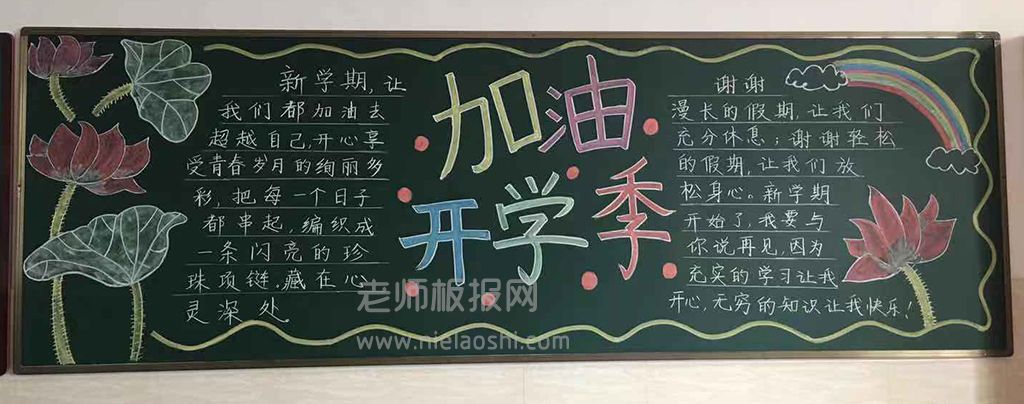 新学期,让
我们都加油去
超越自己,开心享
受青春岁月的绚丽多
彩,把每一个日子
都串起,编织成
一条闪亮的珍
珠项链,藏在心
灵深处
加油
开学季
谢谢
漫长的假期,让我们
充分休息;谢谢轻松
的假期,让我们放
松身心。新学期
开始了,我要与
你说再见,因为
充实的学习让我
开心,无穷的知识让我快乐!
老师板报网
www.nielaoshi.com